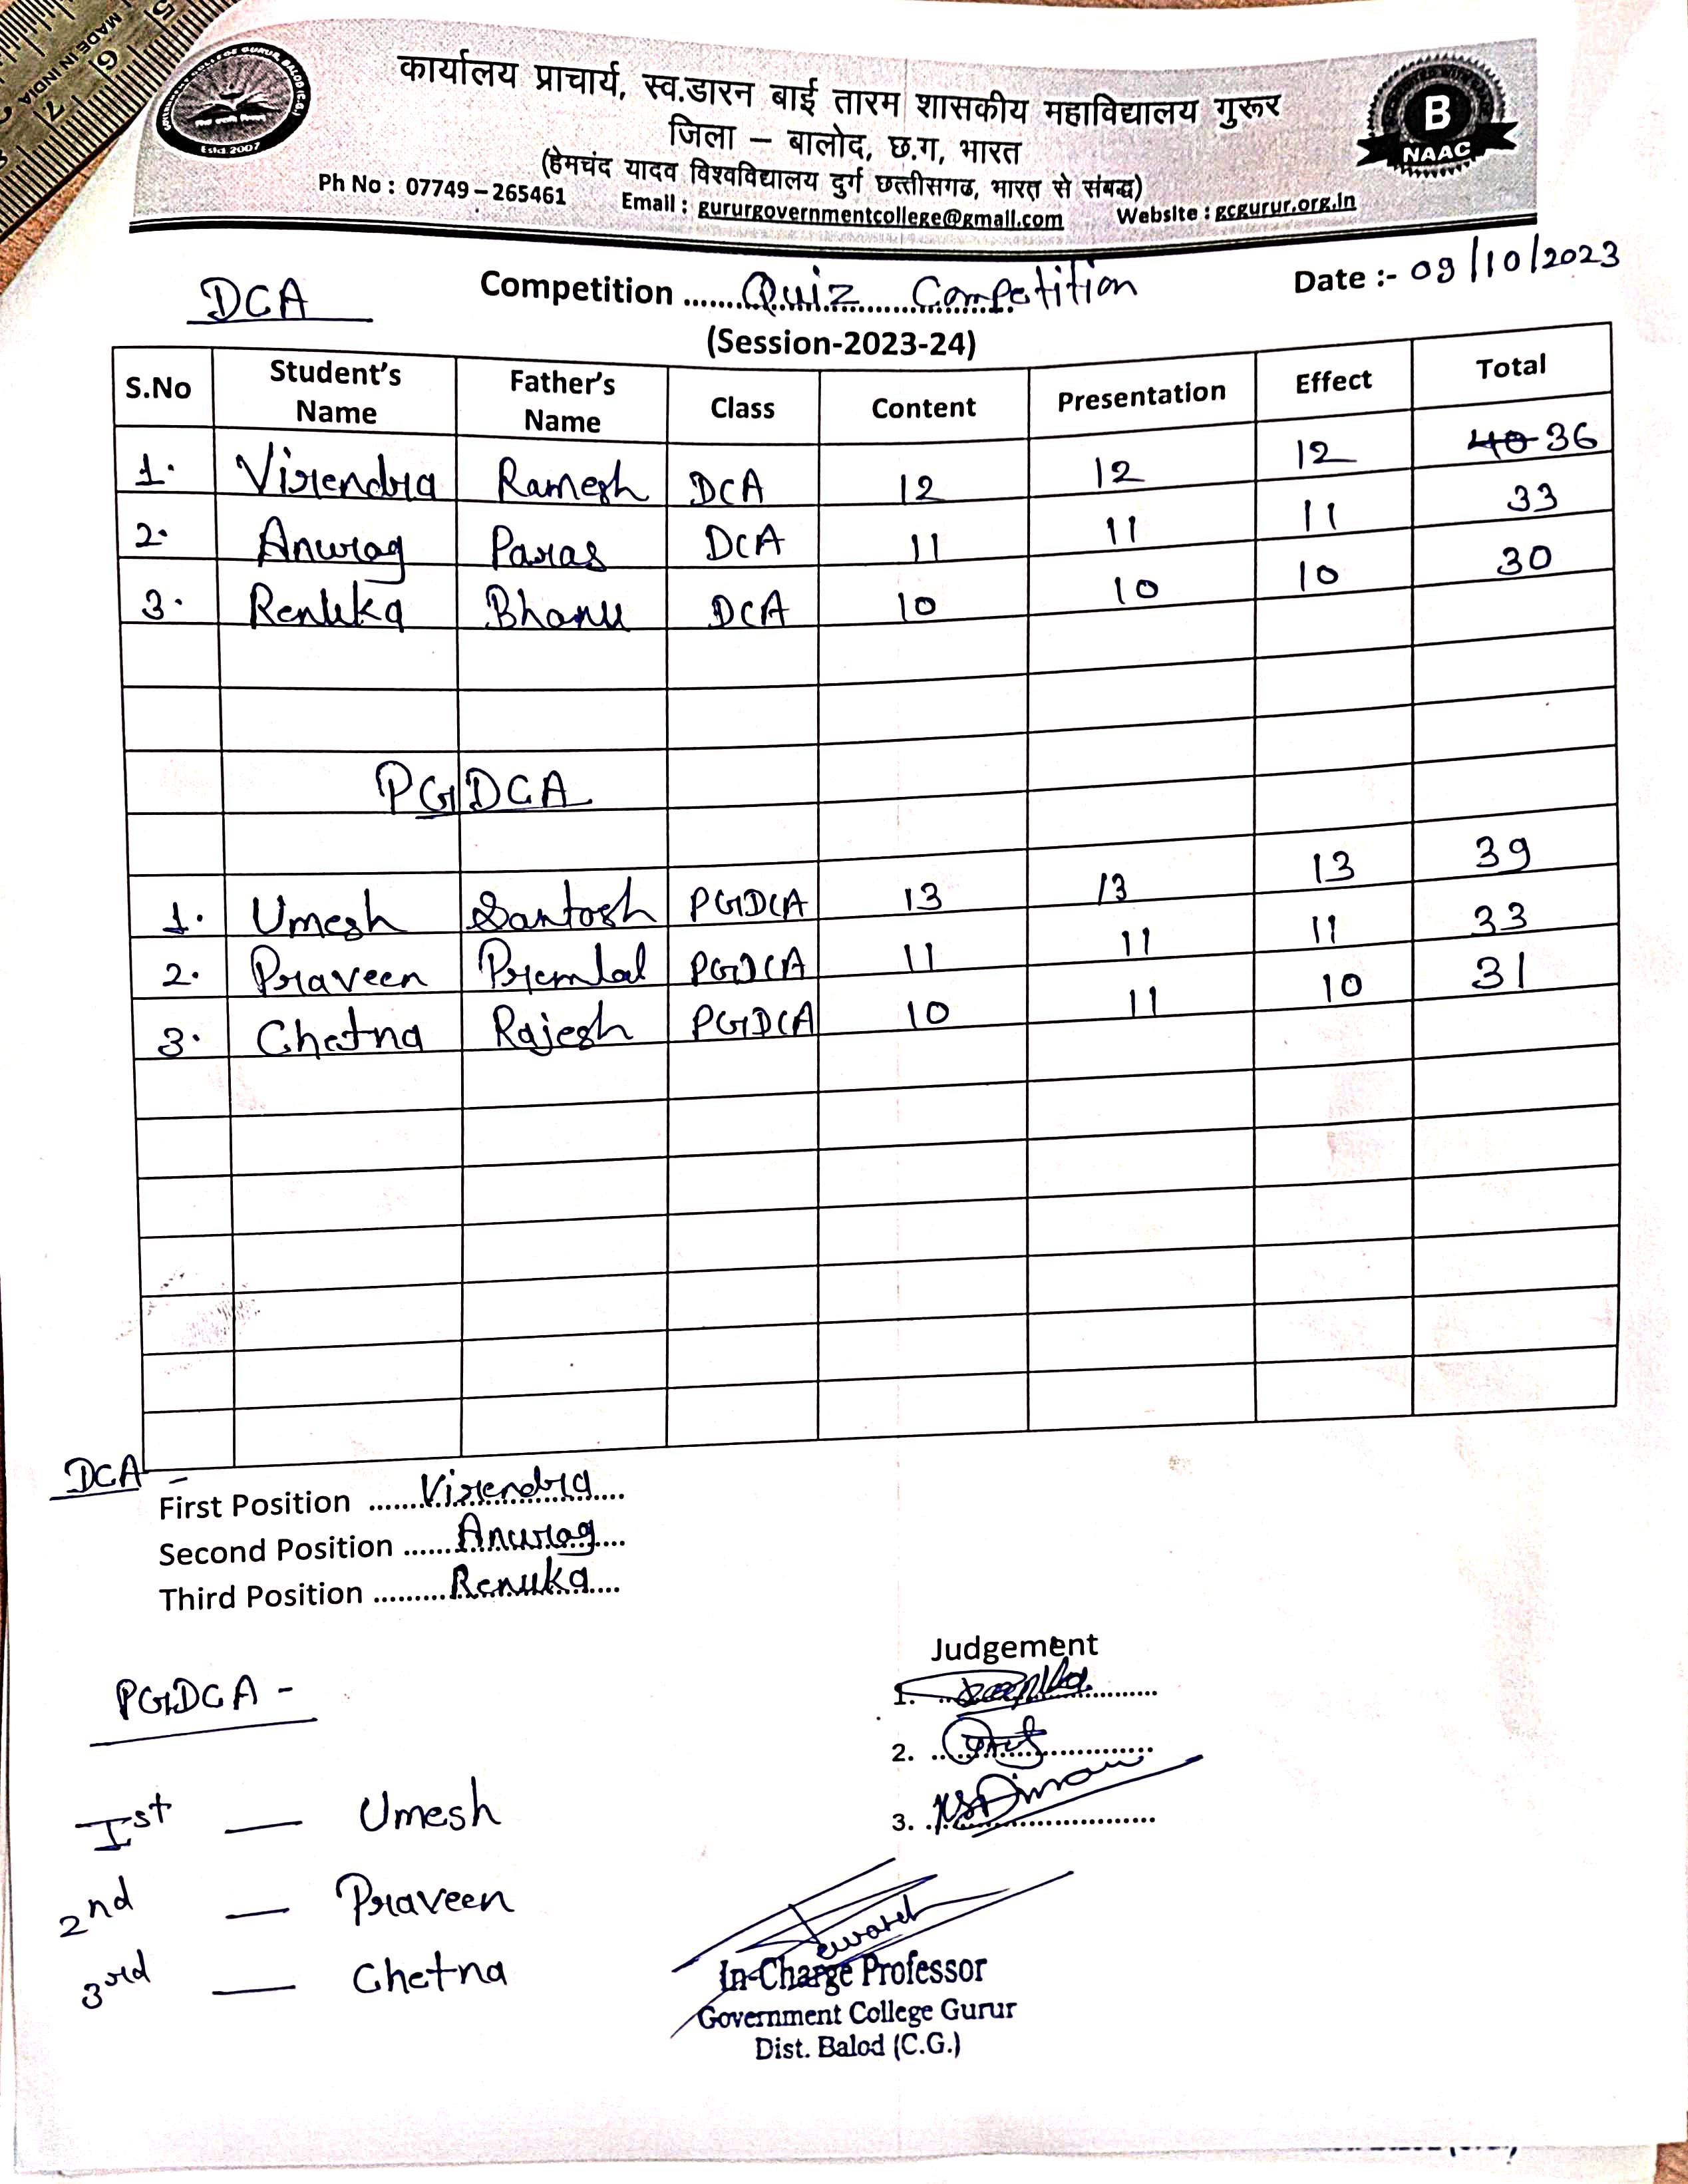 MADE IN INDIA
5
6
7
कार्यालय प्राचार्य, स्व.डारन बाई तारम शासकीय महाविद्यालय गुरूर
जिला – बालोद, छ.ग, भारत
(हेमचंद यादव विश्वविद्यालय दुर्ग छत्तीसगढ, भारत से संबद्ध)
Ph No : 07749-265461 Email : gururgovernmentcollege@gmail.com Website : gcgurur.org.in
Estd. 2007
B
NAAC
DCA Competition ....... Quiz Competition Date :- 09/10/2023
(Session-2023-24)
S.No Student's Name Father's Name Class Content Presentation Effect Total
1. Virendra Ramesh DCA 12 12 12 40 36
2. Anurag Paras DCA 11 11 11 33
3. Renuka Bhanu DCA 10 10 10 30
PGDCA
1. Umesh Santosh PGDCA 13 13 13 39
2. Praveen Premlal PGDCA 11 11 11 33
3. Chetna Rajesh PGDCA 10 11 10 31
DCA -
First Position ....... Virendra
Second Position ...... Anurag
Third Position ......... Renuka
Judgement
1.
2.
3.
PGDCA -
Ist — Umesh
2nd — Praveen
3rd — Chetna
In-Charge Professor
Government College Gurur
Dist. Balod (C.G.)